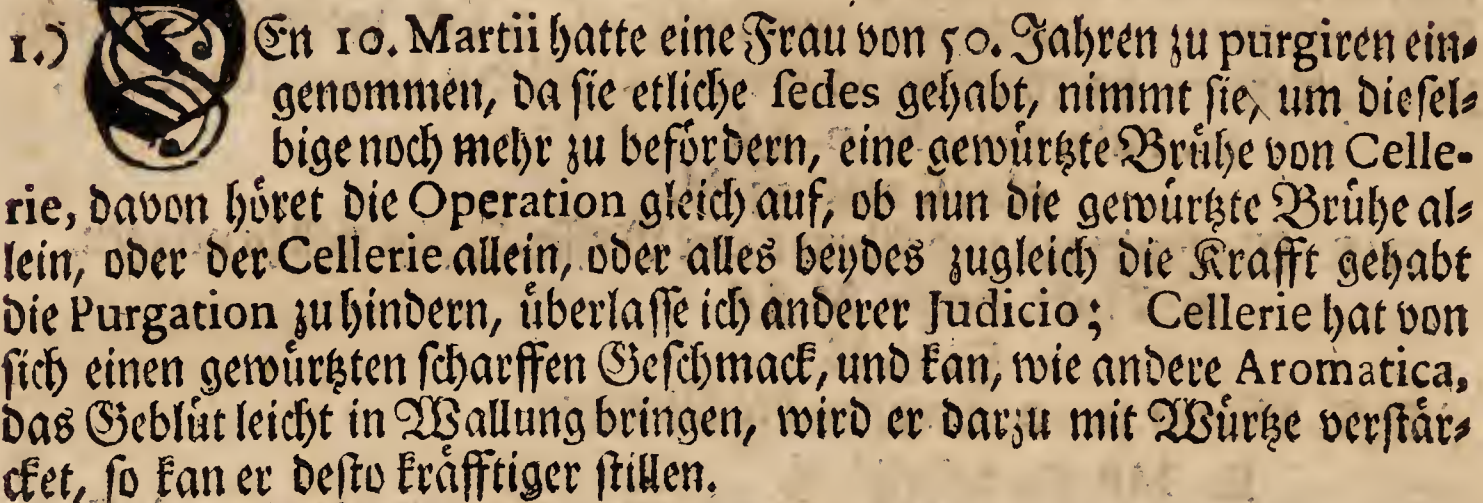 1.) DEn 10. Martii hatte eine Frau von 50. Jahren zu purgiren ein-
genommen, da sie etliche sedes gehabt, nimmt sie, um diesel-
bige noch mehr zu befördern, eine gewürtzte Brühe von Celle-
rie, davon höret die Operation gleich auf, ob nun die gewürtzte Brühe al-
lein, oder der Cellerie allein, oder alles beydes zugleich die Krafft gehabt
die Purgation zu hindern, überlasse ich anderer Judicio; Cellerie hat von
sich einen gewürtzten scharffen Geschmack, und kan, wie andere Aromatica,
das Geblüt leicht in Wallung bringen, wird er darzu mit Würtze verstär-
cket, so kan er desto kräfftiger stillen.